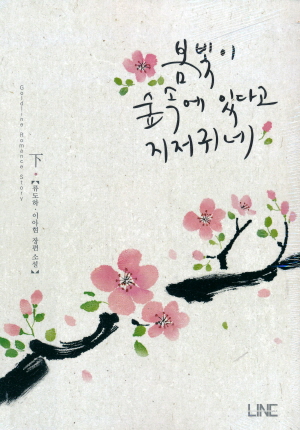 봄빛이
숲속에 있다고
지저귀네
Goldline Romance Story
下
【류도하·이아힌 장편 소설】
LINE